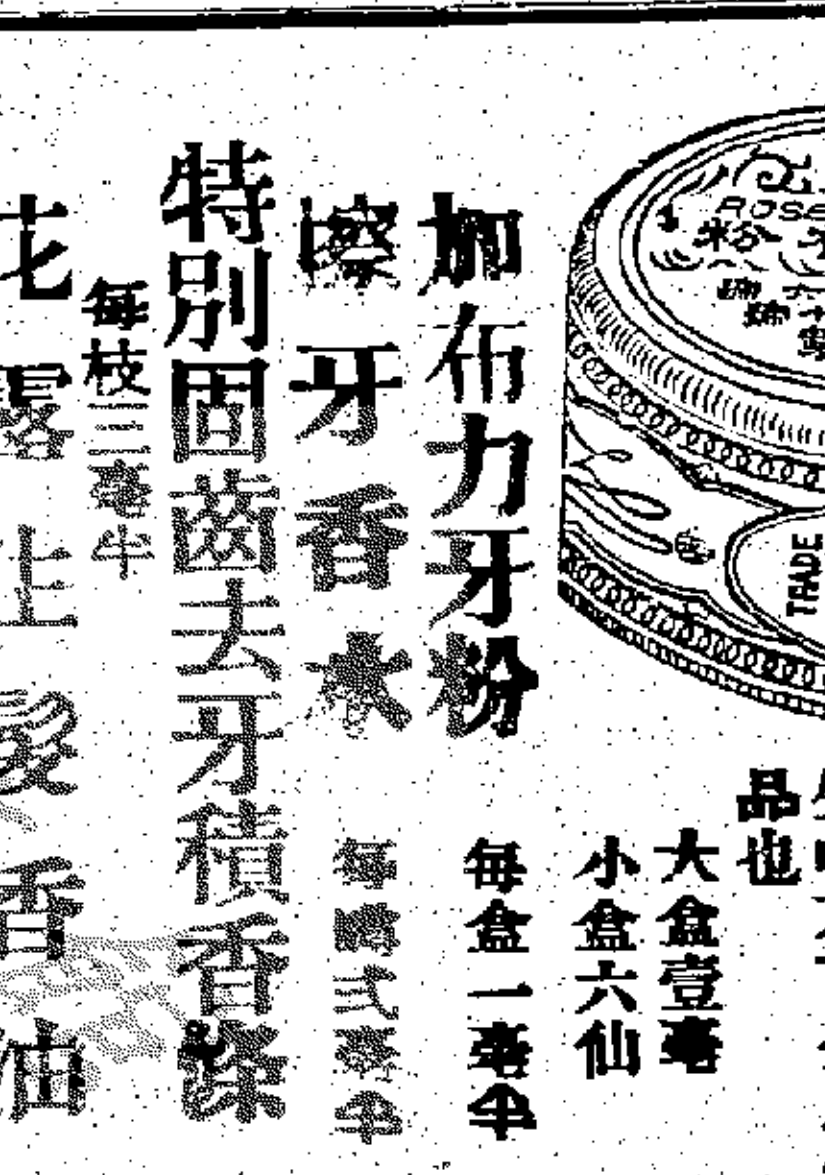 ROSE
粉
TRADE
品也
大盒壹毫
小盒六仙
加布力牙粉
每盒一毫半
擦牙香水
每樽弍毫半
特別固齒去牙積香條
每枝三毫半
花露生髮香油